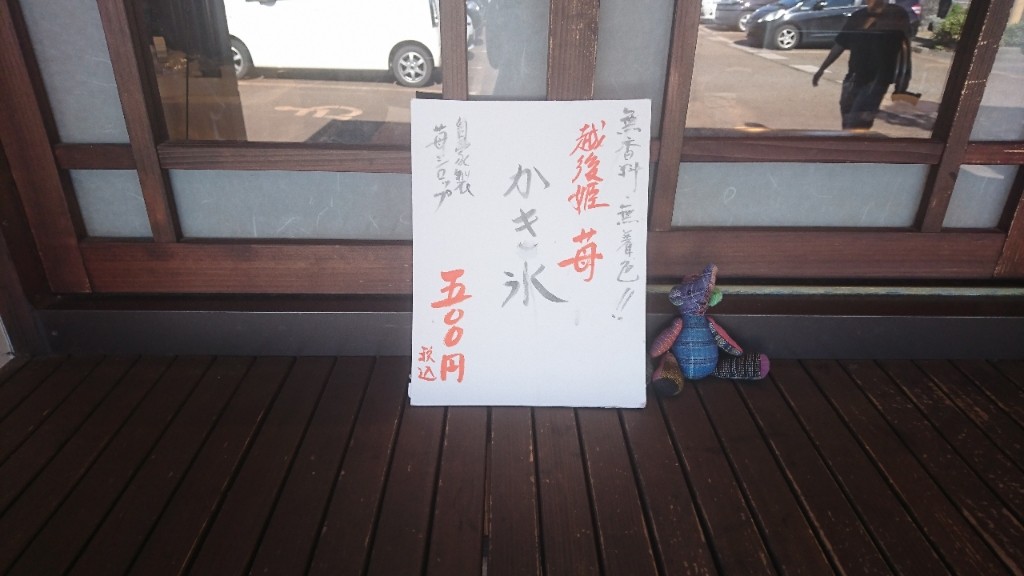 無香料・無着色!!
越後姫 苺
かき氷
自家製
苺シロップ
五〇〇円
税込